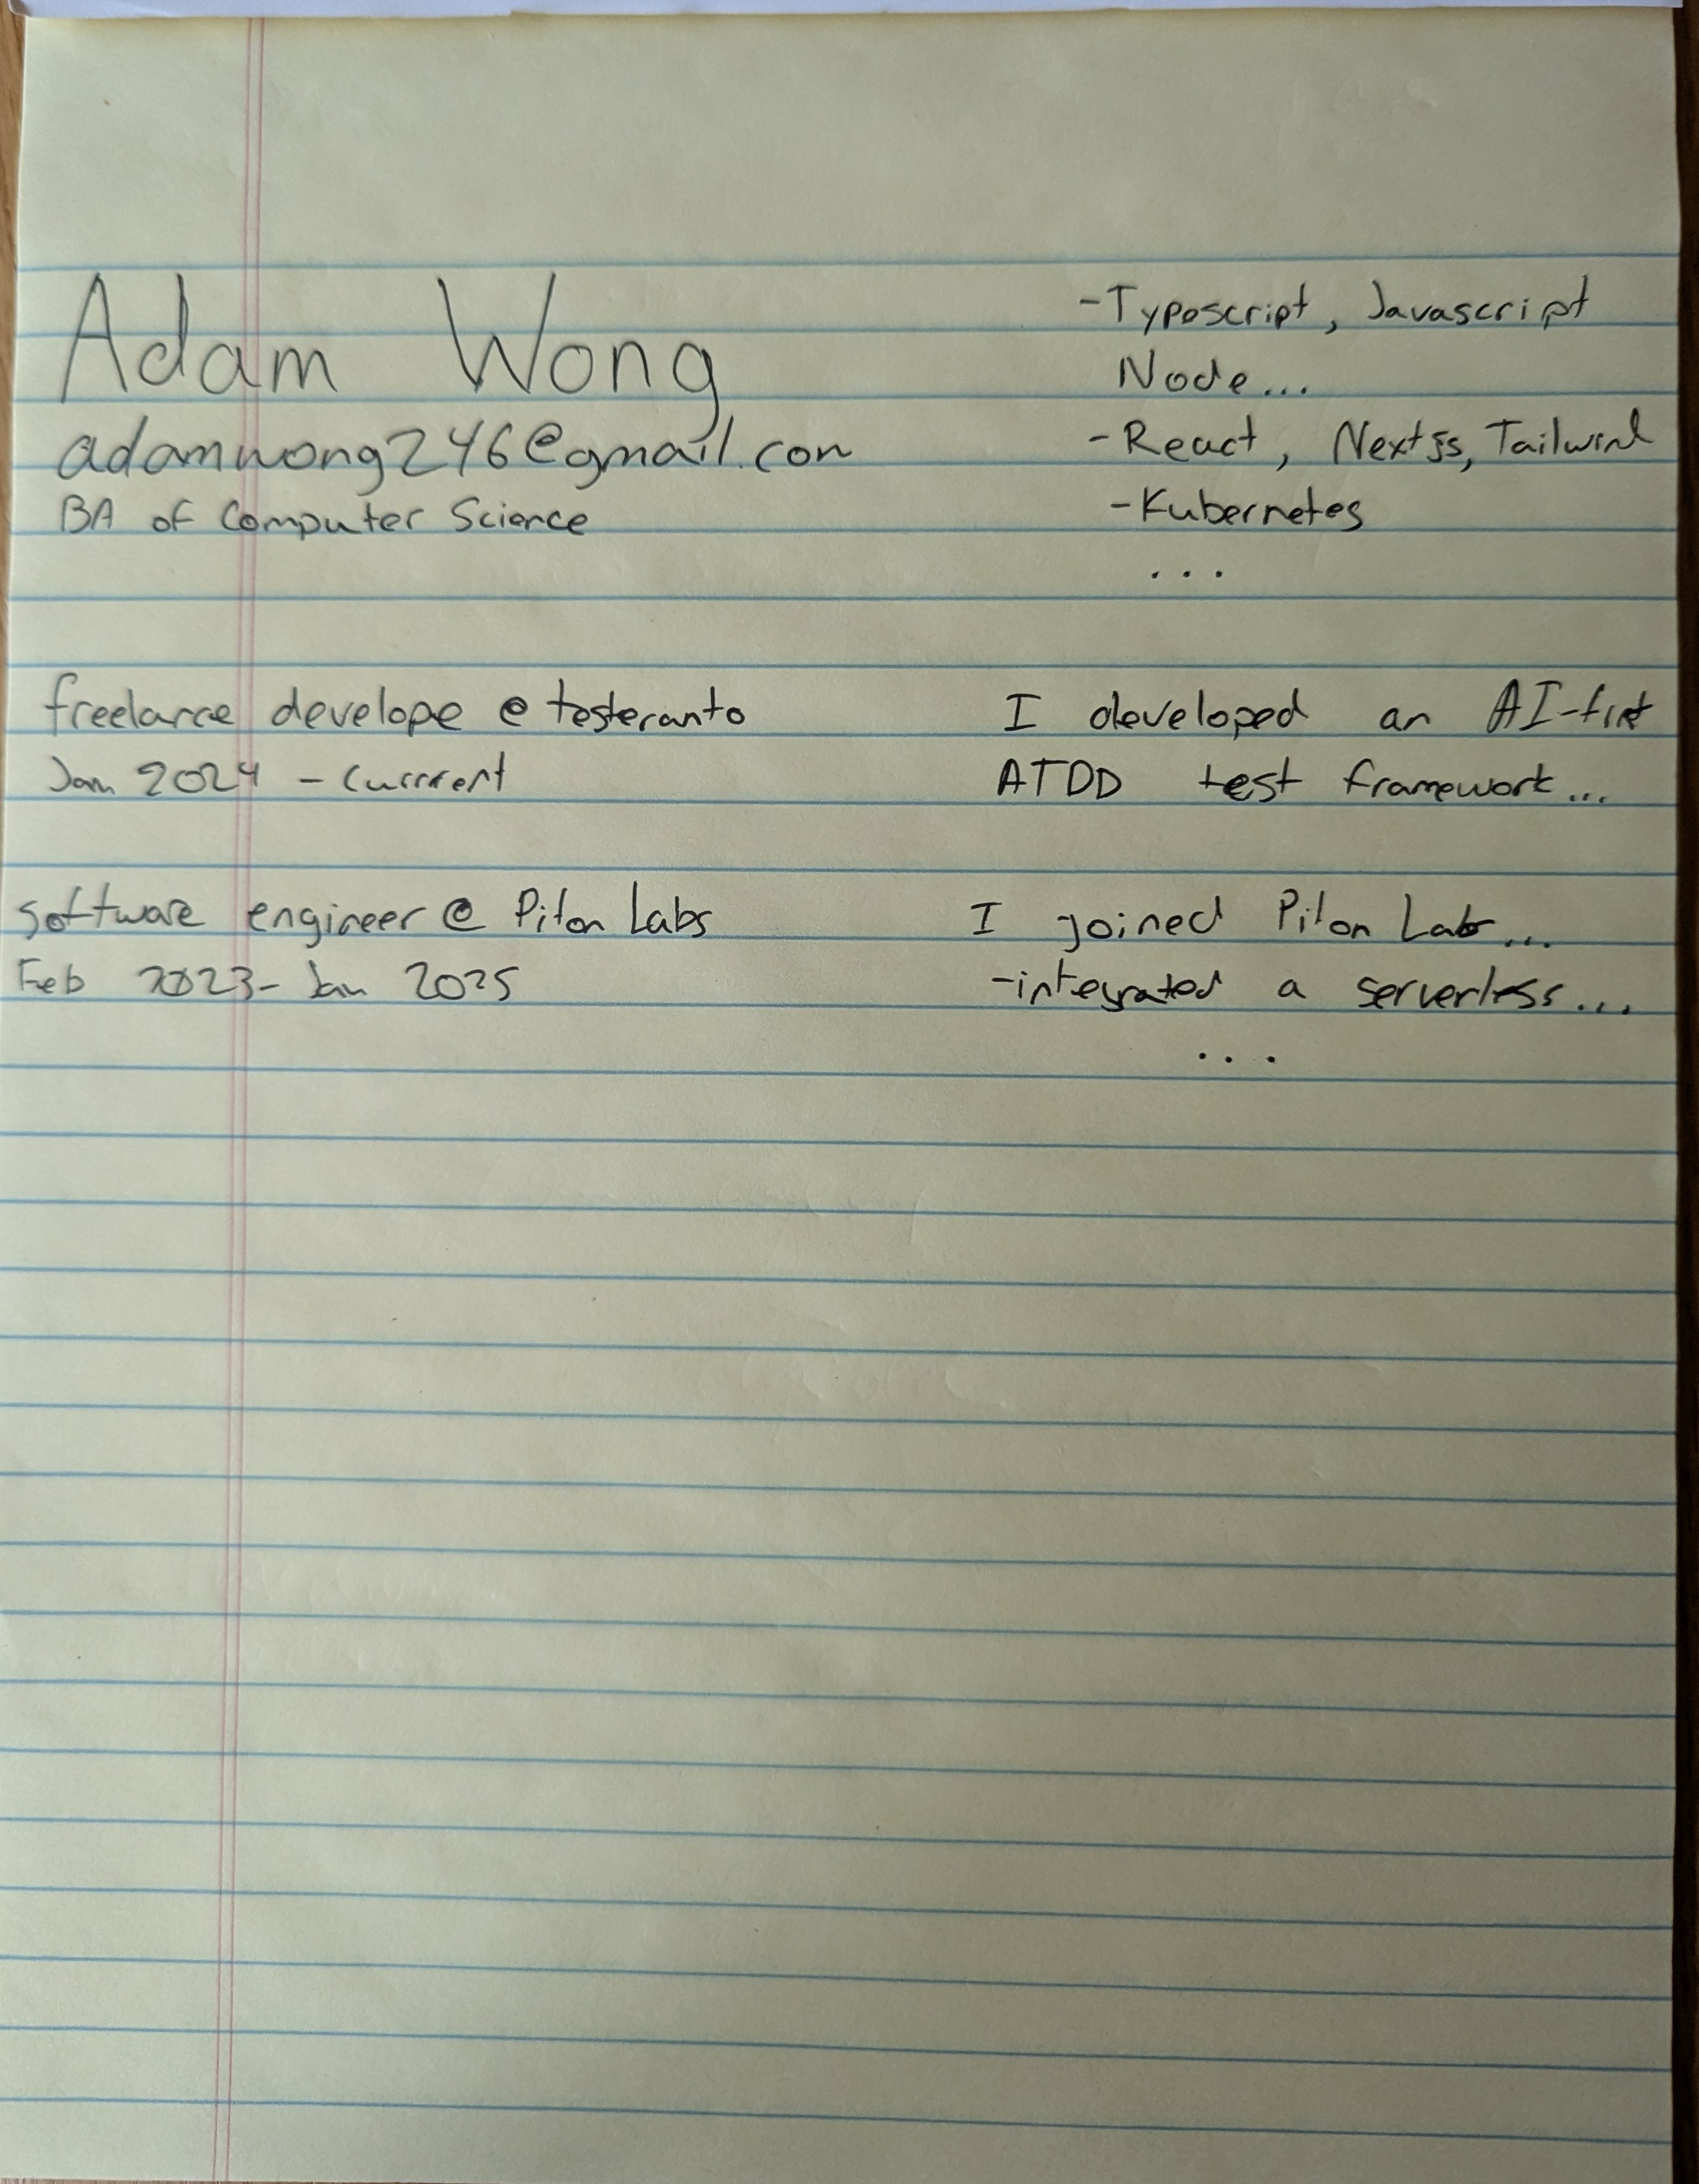 Adam Wong
adamwong246@gmail.com
BA of Computer Science
-Typescript, Javascript
Node...
-React, Nextjs, Tailwind
-Kubernetes
...
freelance develope @ testeranto
Jan 2024 - Currrent
I developed an AI-first
ATDD test framework...
software engineer @ Pilon Labs
Feb 2023- Jan 2025
I joined Pilon Labs...
-integrated a serverless...
...